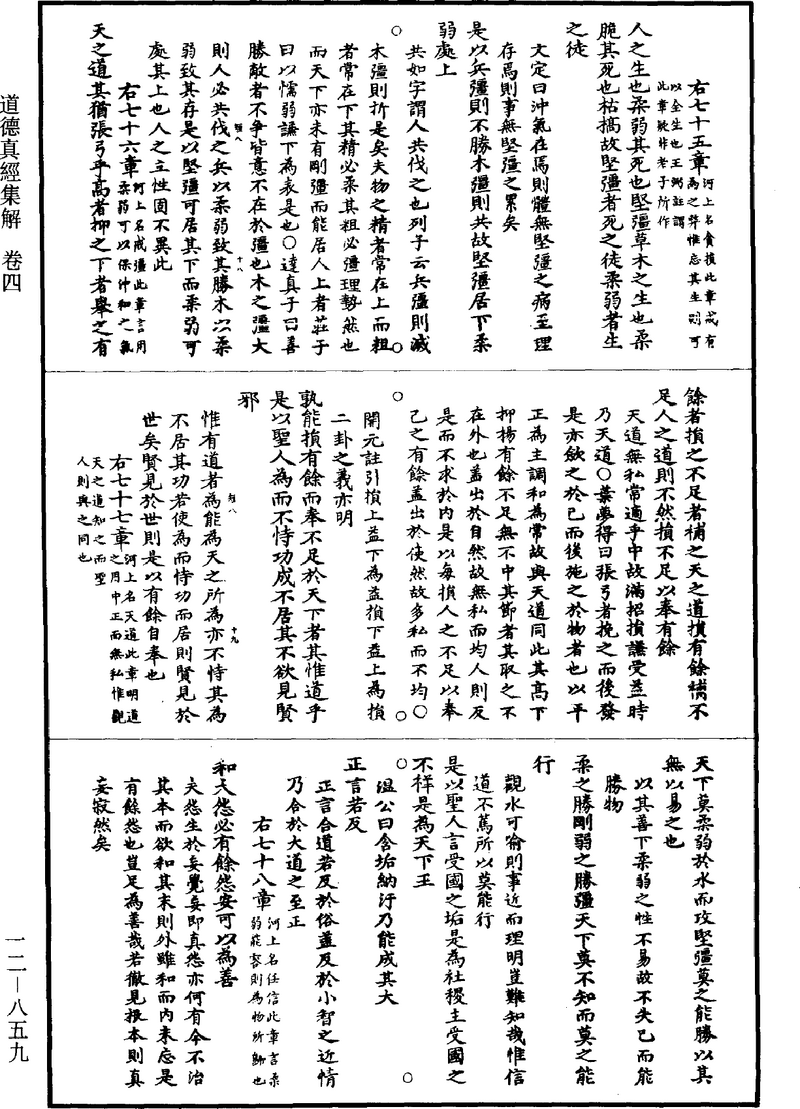 道德真經集解　卷四
一二—八五九
右七十五章
河上名貪損此章戒有
為之弊惟忘其生則可
以全生也王弼註謂
此章疑非老子所作
人之生也柔弱其死也堅彊草木之生也柔
脆其死也枯槁故堅彊者死之徒柔弱者生
之徒
文定曰沖氣在焉則體無堅彊之病至理
存焉則事無堅彊之累矣
是以兵彊則不勝木彊則共故堅彊居下柔
弱處上
共如字謂人共伐之也列子云兵彊則滅
木彊則折是矣夫物之精者常在上而粗
者常在下其精必柔其粗必彊理勢然也
而天下亦未有剛彊而能居人上者莊子
曰以懦弱謙下為表是也○達真子曰善
勝敵者不爭皆意不在於彊也木之彊大
則人必共伐之兵以柔弱致其勝木以柔
弱致其存是以堅彊可居其下而柔弱可
處其上也人之立性固不異此
右七十六章
河上名戒彊此章言用
柔弱可以保沖和之氣
天之道其猶張弓乎高者抑之下者舉之有
餘者損之不足者補之天之道損有餘補不
足人之道則不然損不足以奉有餘
天道無私常適乎中故滿招損謙受益時
乃天道○葉夢得曰張弓者挽之而後發
是亦斂之於己而後施之於物者也以平
正為主調和為常故與天道同此其高下
抑揚有餘不足無不中其節者其取之不
在外也蓋出於自然故無私而均人則反
是而不求於內是以每損人之不足以奉
己之有餘蓋出於使然故多私而不均○
開元註引損上益下為益損下益上為損
二卦之義亦明
孰能損有餘而奉不足於天下者其惟道乎
是以聖人為而不恃功成不居其不欲見賢
邪
惟有道者為能為天之所為亦不恃其為
不居其功若使為而恃功而居則賢見於
世矣賢見於世則是以有餘自奉也
右七十七章
河上名天道此章明道
之用中正而無私惟觀
天之道知之而聖
人則與之同也
天下莫柔弱於水而攻堅彊莫之能勝以其
無以易之也
以其善下柔弱之性不易故不失己而能
勝物
柔之勝剛弱之勝彊天下莫不知而莫之能
行
觀水可喻則事近而理明豈難知哉惟信
道不篤所以莫能行
是以聖人言受國之垢是為社稷主受國之
不祥是為天下王
溫公曰含垢納汙乃能成其大
正言若反
正言合道若反於俗蓋反於小智之近情
乃合於大道之至正
右七十八章
河上名任信此章言柔
弱能勢則為物所歸也
和大怨必有餘怨安可以為善
夫怨生於妄覺妄即真怨亦何有今不治
其本而欲和其末則外雖和而內未忘是
有餘怨也豈足為善哉若徹見根本則真
妄寂然矣